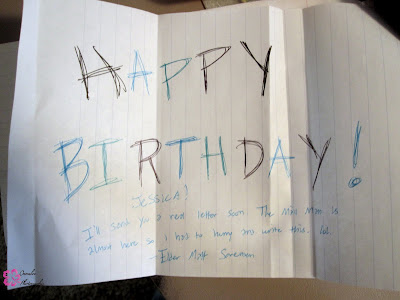 HAPPY
BIRTHDAY!
Jessica!
I'll send you a real letter soon. The Mail Man is
almost here so I had to hurry and write this. lol.
-Elder Matt